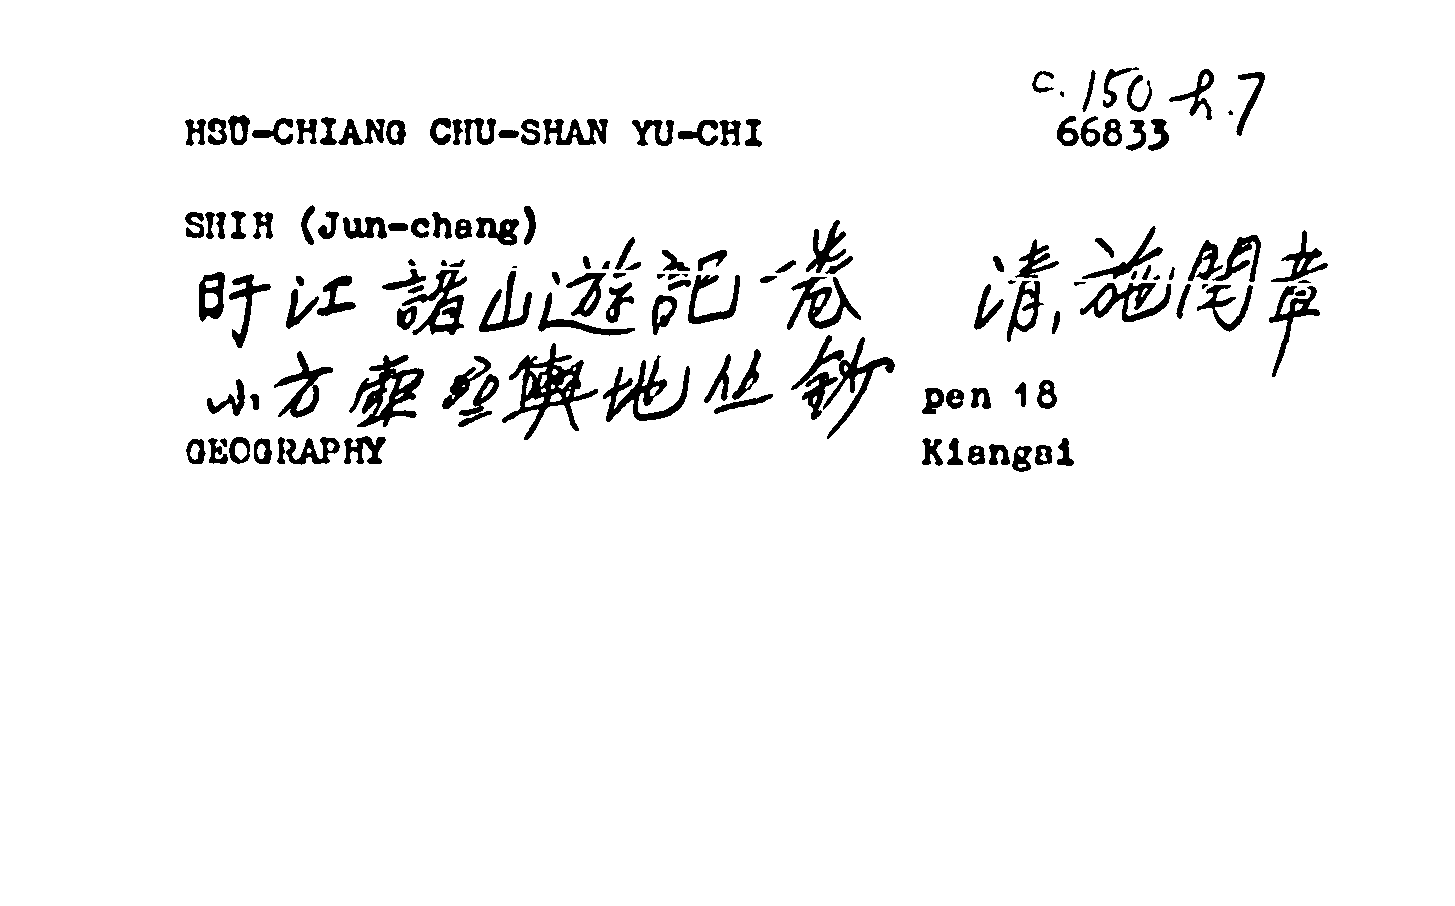 c.150 h.7
HSÜ-CHIANG CHU-SHAN YU-CHI 66833
SHIH (Jun-chang)
旴江諸山遊記一卷 清,施閏章
小方壺齋輿地丛鈔 pen 18
GEOGRAPHY Kiangsi